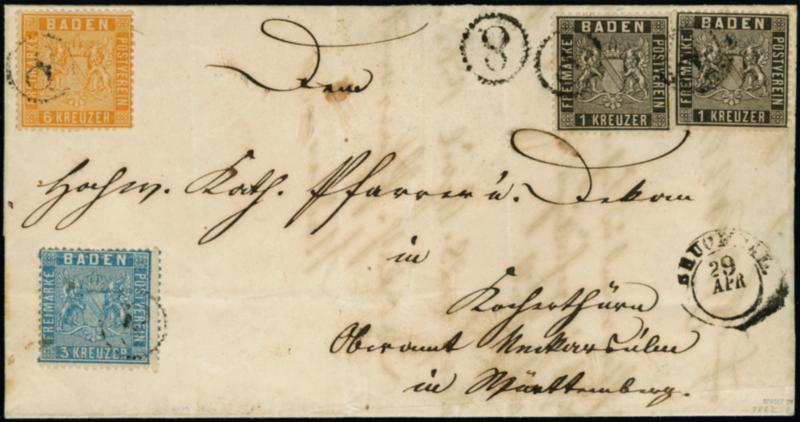 BADEN
FREIMARKE
POSTVEREIN
6 KREUZER
8
BADEN
FREIMARKE
POSTVEREIN
1 KREUZER
BADEN
FREIMARKE
POSTVEREIN
1 KREUZER
Dem
Hochw. Kath. Pfarrer u. Dekan
in
BADEN
FREIMARKE
POSTVEREIN
3 KREUZER
29
APR
Kocherthürn
Oberamt Neckarsulm
in Württemberg.